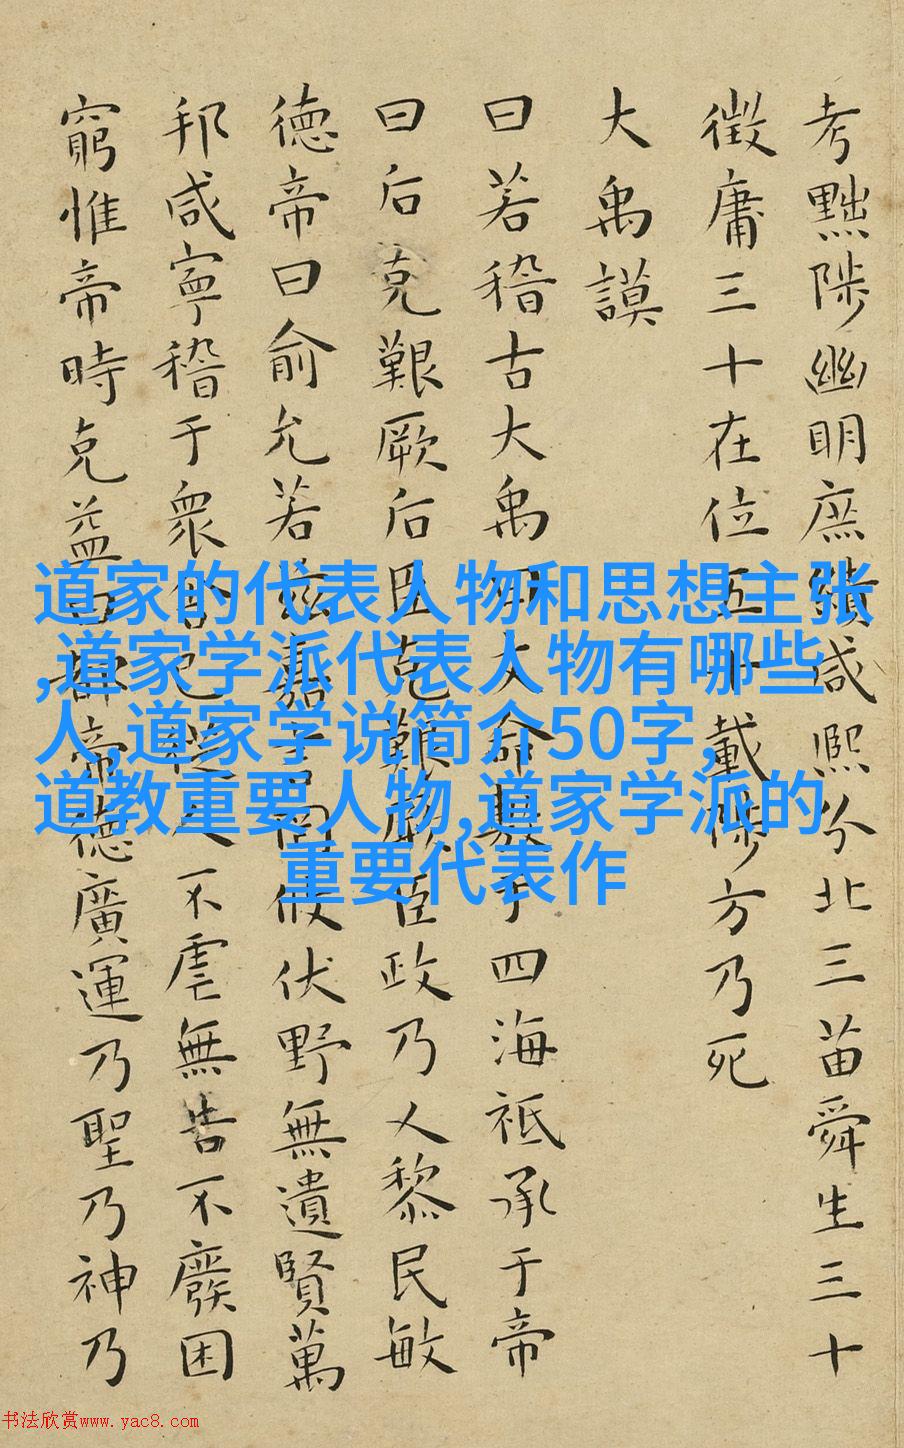 考黜陟幽明庶績咸熙分北三苗舜生三十
徵庸三十在位五十載陟方乃死
大禹謨
曰若稽古大禹曰文命敷于四海祗承于帝
曰后克艱厥后臣克艱厥臣政乃乂黎民敏
德帝曰俞允若茲嘉言罔攸伏野無遺賢萬
邦咸寧稽于衆舍己從人不虐無告不廢困
窮惟帝時克益曰都帝德廣運乃聖乃神乃
道家的代表人物和思想主张
,道家学派代表人物有哪些
人,道家学说简介50字,
道教重要人物,道家学派的
重要代表作
书法欣赏www.yac8.com